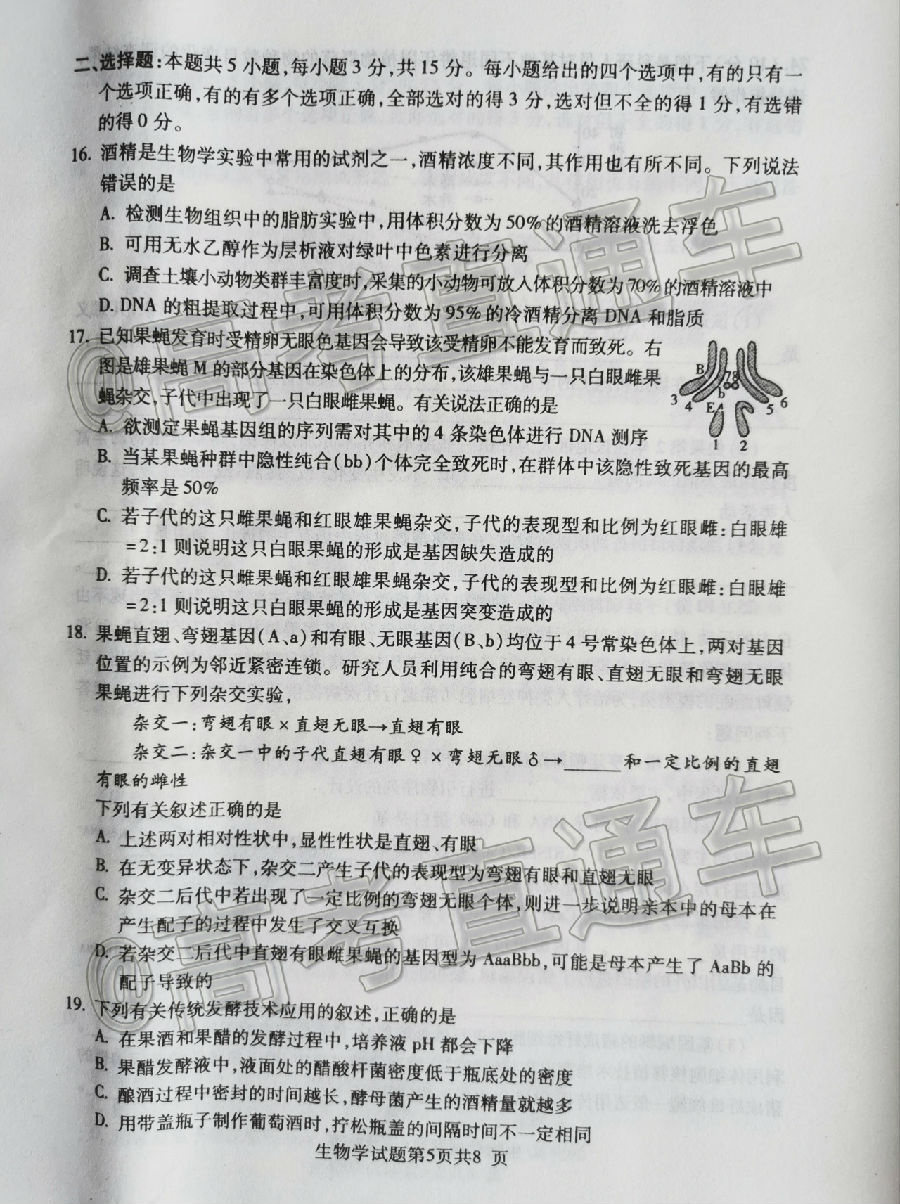 二、选择题:本题共5小题,每小题3分,共15分。每小题给出的四个选项中,有的只有一
个选项正确,有的有多个选项正确,全部选对的得3分,选对但不全的得1分,有选错
的得0分。
16. 酒精是生物学实验中常用的试剂之一,酒精浓度不同,其作用也有所不同。下列说法
错误的是
A. 检测生物组织中的脂肪实验中,用体积分数为50%的酒精溶液洗去浮色
B. 可用无水乙醇作为层析液对绿叶中色素进行分离
C. 调查土壤小动物类群丰富度时,采集的小动物可放入体积分数为70%的酒精溶液中
D. DNA的粗提取过程中,可用体积分数为95%的冷酒精分离DNA和脂质
17. 已知果蝇发育时受精卵无眼色基因会导致该受精卵不能发育而致死。右
图是雄果蝇M的部分基因在染色体上的分布,该雄果蝇与一只白眼雌果
蝇杂交,子代中出现了一只白眼雌果蝇。有关说法正确的是
B 7 8
b
3 4 E 5 6
1 2
A. 欲测定果蝇基因组的序列需对其中的4条染色体进行DNA测序
B. 当某果蝇种群中隐性纯合(bb)个体完全致死时,在群体中该隐性致死基因的最高
频率是50%
C. 若子代的这只雌果蝇和红眼雄果蝇杂交,子代的表现型和比例为红眼雌:白眼雄
=2:1则说明这只白眼果蝇的形成是基因缺失造成的
D. 若子代的这只雌果蝇和红眼雄果蝇杂交,子代的表现型和比例为红眼雌:白眼雄
=2:1则说明这只白眼果蝇的形成是基因突变造成的
18. 果蝇直翅、弯翅基因(A、a)和有眼、无眼基因(B、b)均位于4号常染色体上,两对基因
位置的示例为邻近紧密连锁。研究人员利用纯合的弯翅有眼、直翅无眼和弯翅无眼
果蝇进行下列杂交实验,
杂交一:弯翅有眼×直翅无眼→直翅有眼
杂交二:杂交一中的子代直翅有眼♀×弯翅无眼♂→______和一定比例的直翅
有眼的雌性
下列有关叙述正确的是
A. 上述两对相对性状中,显性性状是直翅、有眼
B. 在无变异状态下,杂交二产生子代的表现型为弯翅有眼和直翅无眼
C. 杂交二后代中若出现了一定比例的弯翅无眼个体,则进一步说明亲本中的母本在
产生配子的过程中发生了交叉互换
D. 若杂交二后代中直翅有眼雌果蝇的基因型为AaaBbb,可能是母本产生了AaBb的
配子导致的
19. 下列有关传统发酵技术应用的叙述,正确的是
A. 在果酒和果醋的发酵过程中,培养液pH都会下降
B. 果醋发酵液中,液面处的醋酸杆菌密度低于瓶底处的密度
C. 酿酒过程中密封的时间越长,酵母菌产生的酒精量就越多
D. 用带盖瓶子制作葡萄酒时,拧松瓶盖的间隔时间不一定相同
生物学试题第5页共8 页
@高考直通车
@高考直通车